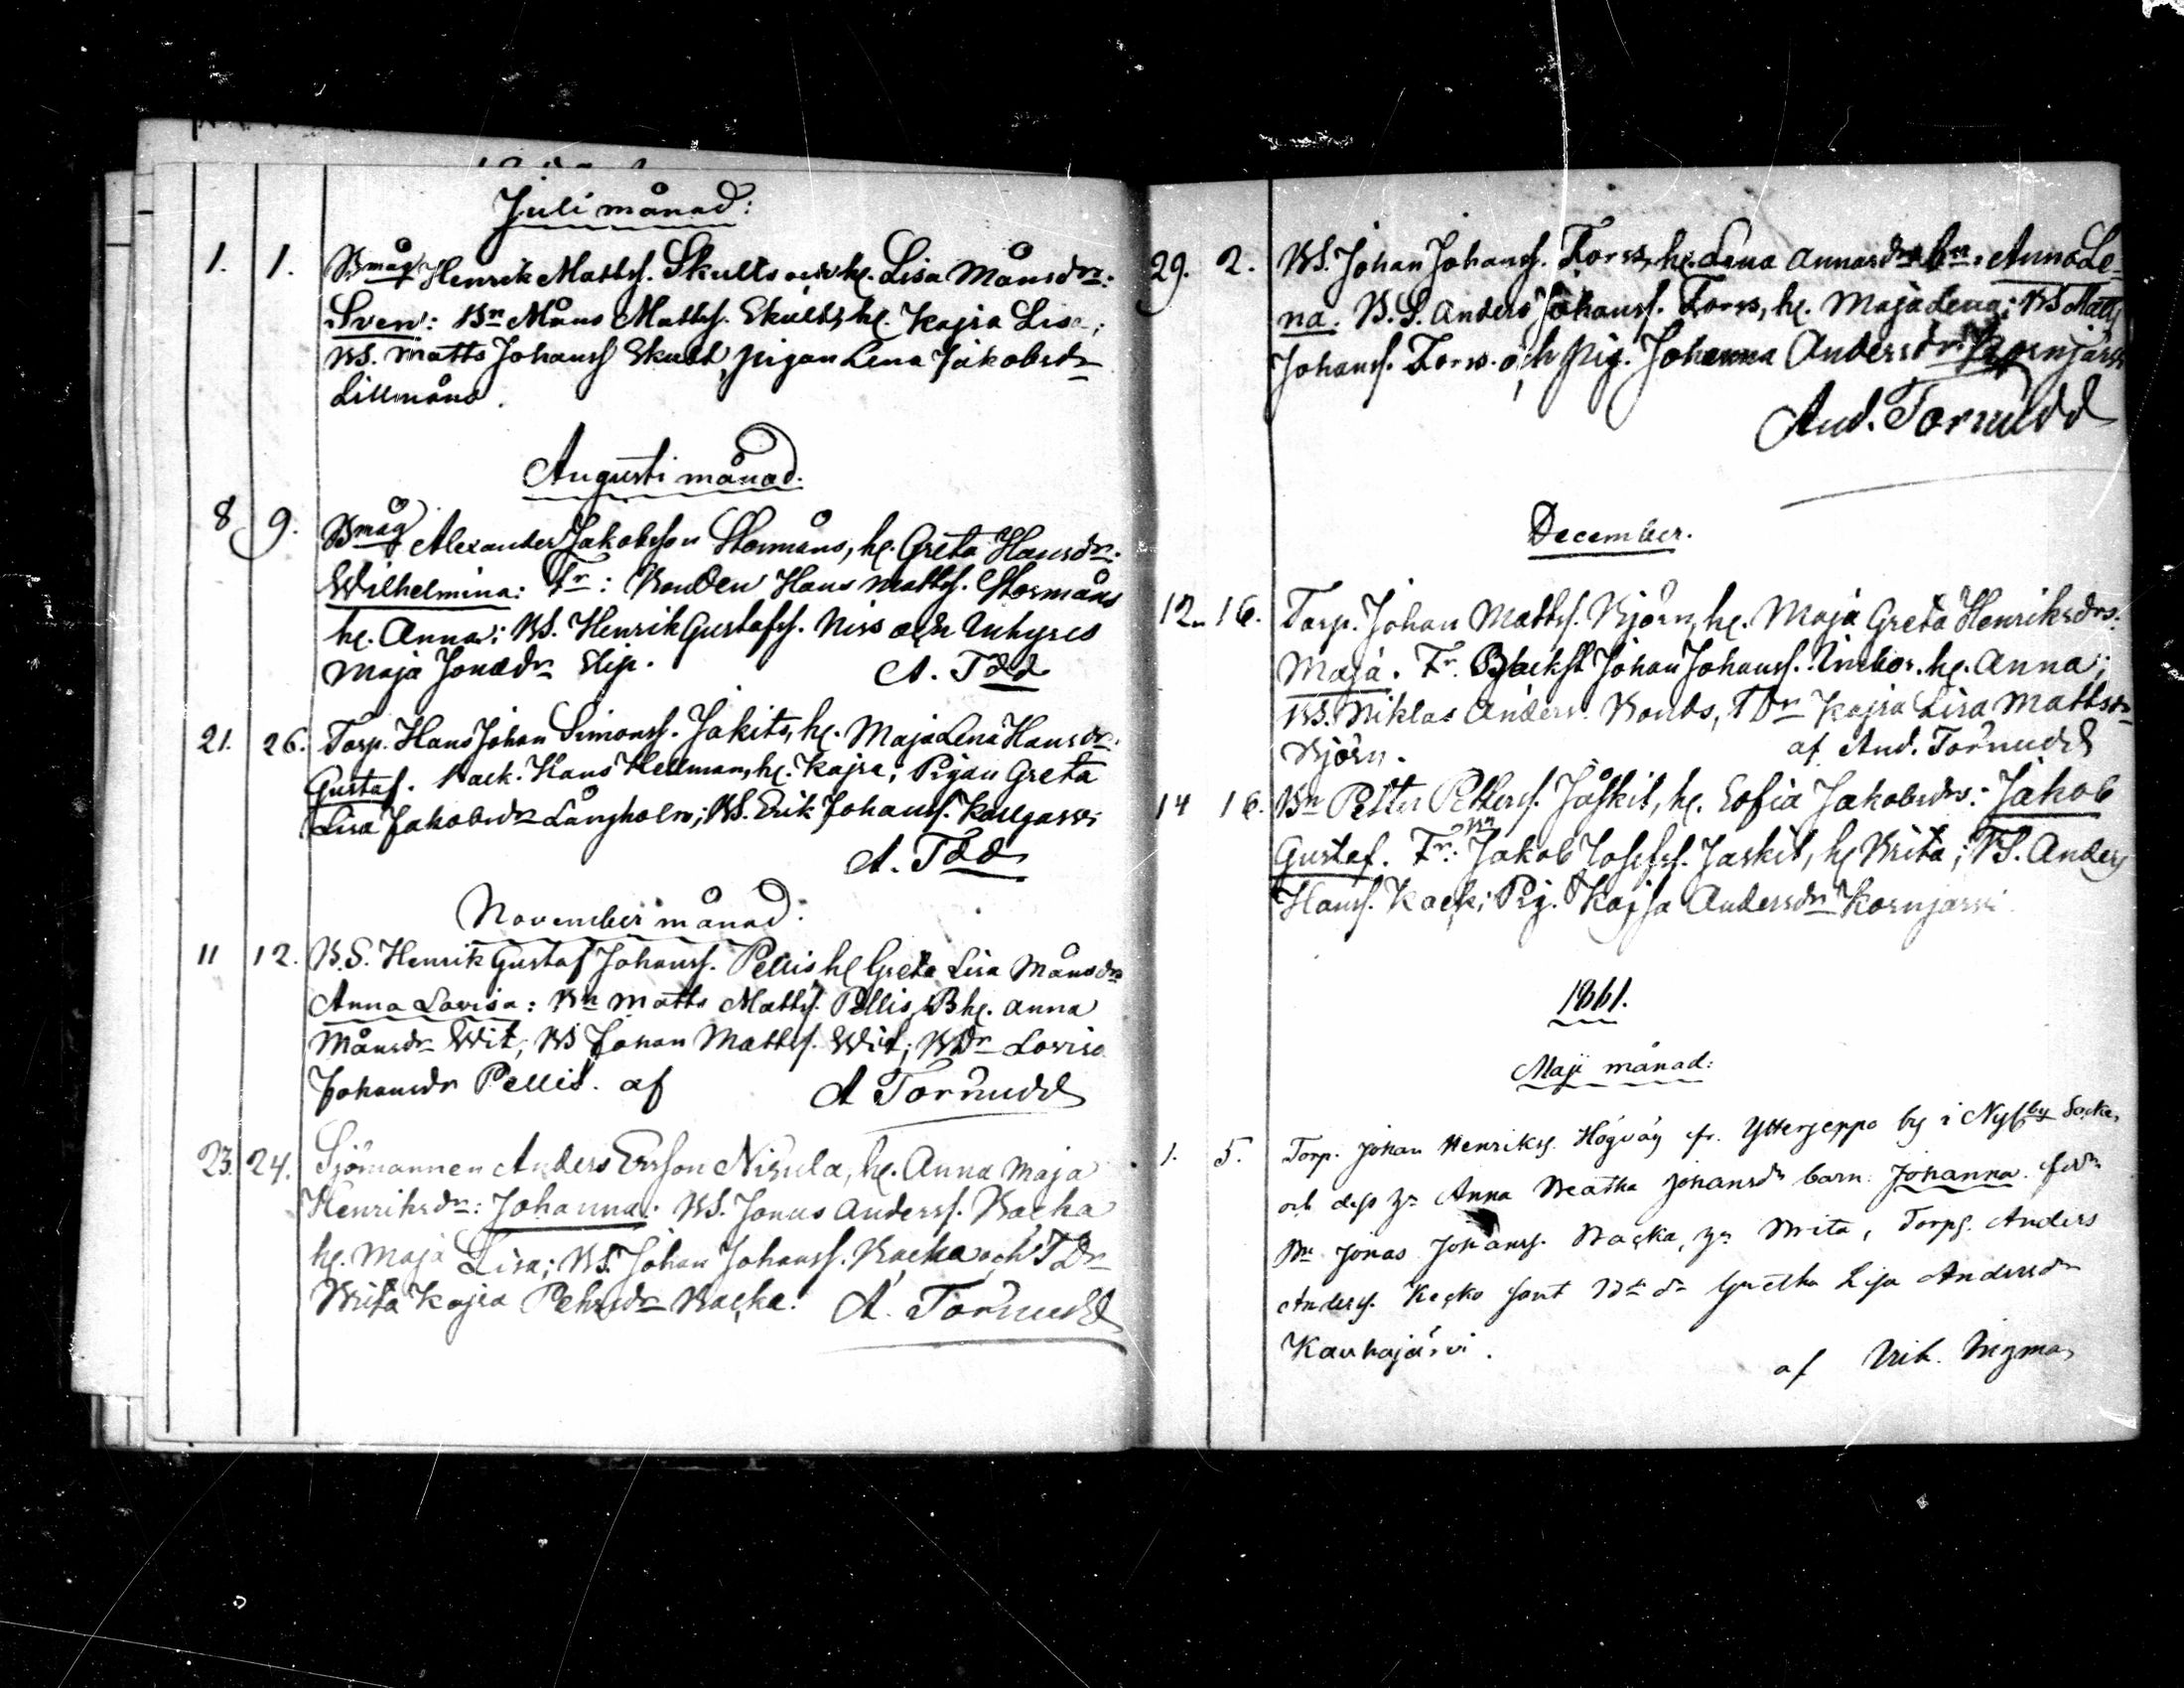 Juli månad:
1. 1. Bmåg Henrik Mattss. Skults och h. Lisa Månsdr:
Sven: Bn Måns Mattss. Skults, h. Kajsa Lisa;
BS. Matts Johanss Skult, pigan Lena Jakobsdr
Lillmåns.
Augusti månad.
8 9. Bmåg Alexander Jakobsson Stormåns, h. Greta Hansdr:
Wilhelmina: Fr: Bonden Hans Mattss. Stormåns
h. Anna; BS. Henrik Gustafss. Niss och Inhyses
Maja Jonasdr Slip. A. Tdd
21. 26. Torp. Hans Johan Simonss. Jakits, h. Maja Lena Hansdr.
Gustaf. Back. Hans Hellman, h. Kajsa; Pigan Greta
Lisa Jakobsdr Långholm; BS. Erik Johanss.
A. Tdd
November månad:
11 12. B.S. Henrik Gustaf Johanss. Pellis h Greta Lisa Månsdr
Anna Lovisa: Bn Matts Mattss. Pellis, Bh. Anna
Månsdr Wit; BS Johan Mattss. Wit; BDr Lovisa
Johansdr Pellis. af A Törnudd
23. 24. Sjömannen Anders Ersson Nisula, h. Anna Maja
Henriksdr: Johanna: BS. Jonas Anderss. Backa
h. Maja Lisa; BS. Johan Johanss. Backa och TDr
Brita Kajsa Pehrsdr Backa. A. Törnudd
29. 2. BS. Johan Johanss. Forss, h. Lena Annasdr bn: Anna Le-
na. B.S. Anders Johanss. Forss, h. Maja Lena; BS Matts
Johanss. Forss. och Pig. Johanna Andersdr
And. Törnudd
December.
12. 16. Torp. Johan Mattss. Björn, h. Maja Greta Henriksdr:
Maja. Fr. Backst Johan Johanss. h. Anna;
BS. Niklas Anderss. Bonds, TDr Kajsa Lisa Mattsdr
Björn. af And. Törnudd
14 16. Bn Petter Petterss. Jåskit, h. Sofia Jakobsdr: Jakob
Gustaf. Fr: Bn Jakob Josefss. Jaskit, h Brita; BS. Anders
Hanss. Kack; Pig. Kajsa Andersdr Kornjärvi.
1861.
Maji månad:
1. 5. Torp. Johan Henrikss. Högväg fr. Ytterjeppo by i Nyby Socken
och dess h: Anna Beatha Johansdr barn: Johanna. fdr
Bn Jonas Johanss. Backa, h: Brita, Torps. Anders
Anderss. Kecko samt Bdr Gretha Lisa Andersdr
Kauhajärvi.
af